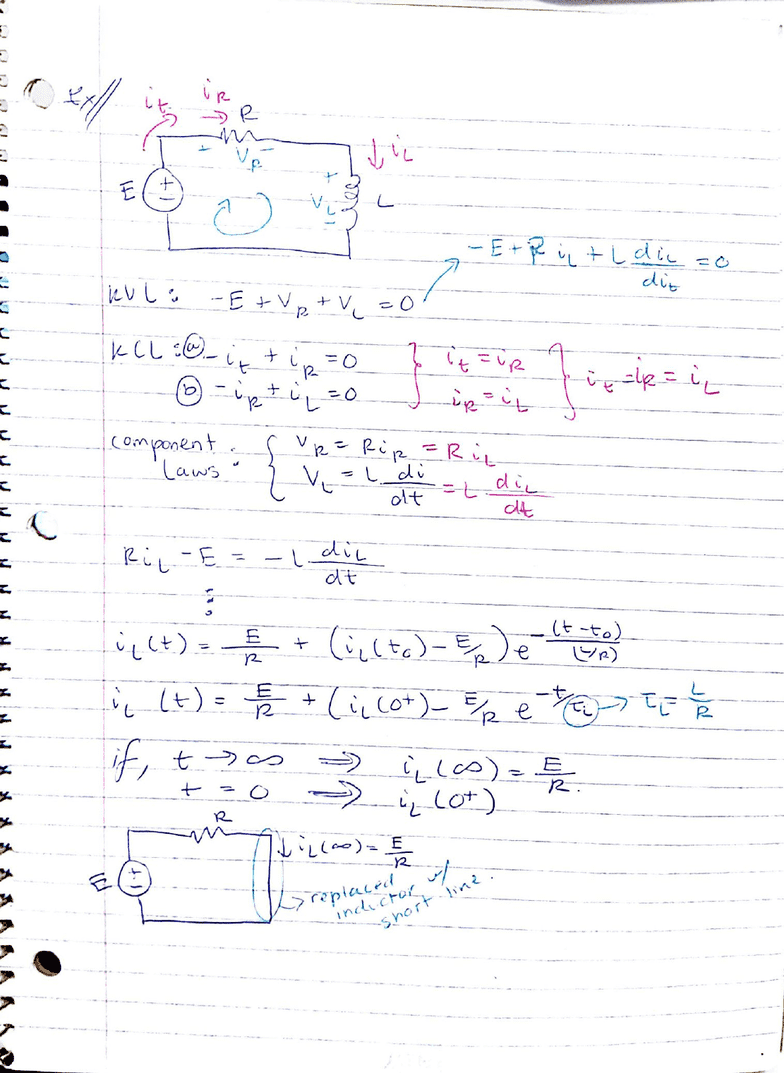 Ex//
i_t i_R
R
+ V_R −
↓ i_L
E
+ V_L −
L
−E + R i_L + L di_L/di_t = 0
KVL: −E + V_R + V_L = 0
KCL: ⓐ −i_t + i_R = 0 } i_t = i_R } i_t = i_R = i_L
ⓑ −i_R + i_L = 0 } i_R = i_L
component Laws: { V_R = R i_R = R i_L
V_L = L di/dt = L di_L/dt
R i_L − E = −L di_L/dt
⋮
i_L(t) = E/R + (i_L(t_0) − E/R) e^−(t−t_0)/(L/R)
i_L (t) = E/R + (i_L(0+) − E/R e^−t/τ_L → τ_L = L/R
if, t → ∞ ⇒ i_L(∞) = E/R.
t = 0 ⇒ i_L(0+)
R
↓ i_L(∞) = E/R
E
→ replaced inductor w/ short line.